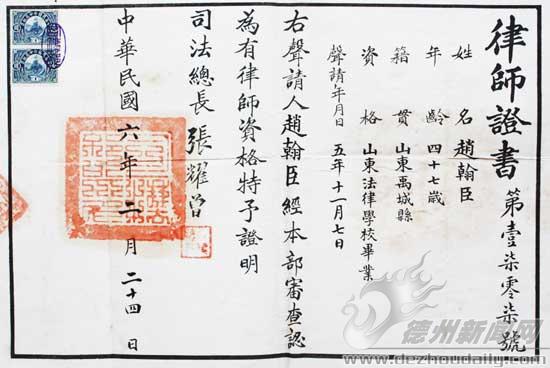 律師證書
第壹柒零柒號
姓名 趙翰臣
年齡 四十七歲
籍貫 山東禹城縣
資格 山東法律學校畢業
聲請年月日 五年十一月七日
右聲請人趙翰臣經本部審查認
為有律師資格特予證明
司法總長 張耀曾
中華民國六年二月二十四日
德州新闻网
www.dezhoudaily.com